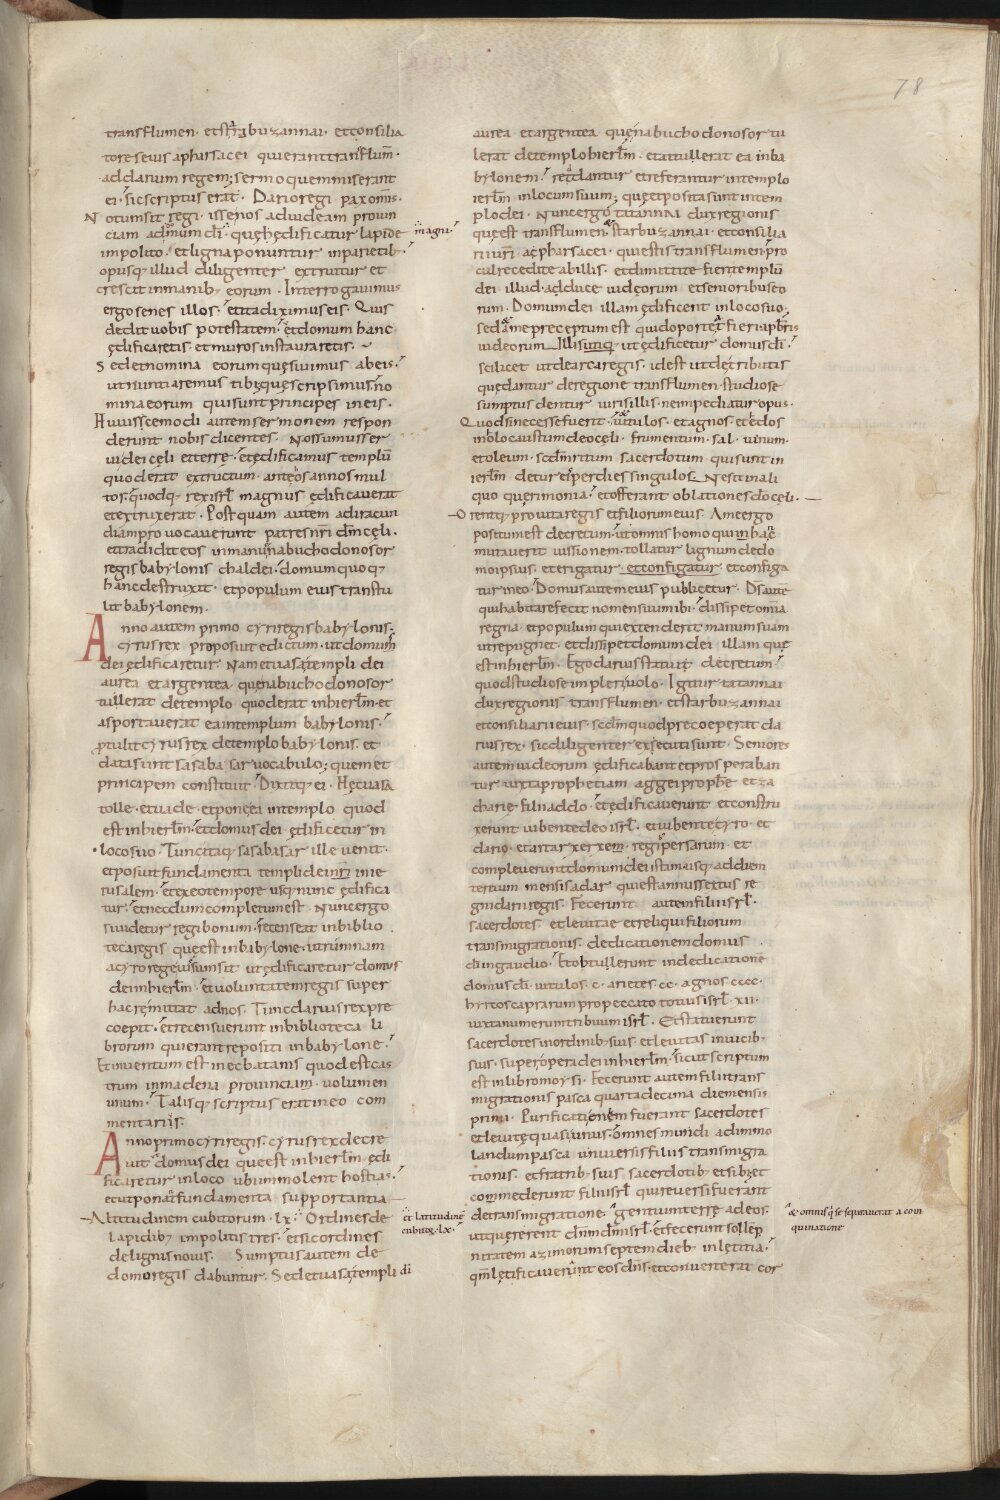 78
transflumen · et stharbuzannai · et consilia
tores eius apharsacei qui erant transflum̄ ·
ad darium regem; sermo quem miserant
ei · sic scriptus erat · Dario regi pax omīs ·
Notum sit regi · isse nos ad iudeam provin
ciam ad domum dī · quę hędificatur lapide
magni
impolito · et ligna ponuntur in parietib ·
opusq; illud diligenter extruitur et
crescit in manib; eorum · Interrogavimus
ergo senes illos · et ita diximus eis · Quis
dedit vobis potestatem · ut domum hanc
ędificaretis · et muros instauraretis ·
Sed et nomina eorum quęsivimus ab eis ·
ut nuntiaremus tibi; quę scripsimus · no
mina eorum qui sunt principes in eis ·
Huiuscemodi autem sermonem respon
derunt nobis dicentes · Nos sumus ser
vi dei cęli et terrę · et ędificamus templū
quod erat extructum · ante hos annos mul
tos · quodq; rex isrl̄ magnus ędificaverat
et extruxerat · Postquam autem ad iracun
diam provocaverunt patres nr̄i dm̄ cęli ·
et tradidit eos in manu nabuchodonosor
regis babylonis chaldei · domum quoq;
hanc destruxit · et populum eius transtu
lit babylonem ·
Anno autem primo cyri regis babylonis ·
cyrus rex proposuit edictum · ut domum
dei ędificaretur Nam et vasa templi dei
aurea et argentea · quę nabuchodonosor
tullerat de templo quod erat in hierl̄m · et
asportaverat ea in templum babylonis ·
protulit cyrus rex de templo babylonis · et
data sunt sasabasar vocabulo; quem et
principem constituit · Dixitq; ei · Hęc vasa
tolle · et vade · et pone ea in templo quod
est in hierl̄m · et domus dei ędificetur in
loco suo · Tunc itaq; sasabasar ille venit ·
et posuit fundamenta templi dei in hie
rusalem · et ex eo tempore usq; nunc ędifica
tur · et necdum completum est Nunc ergo
si videtur regi bonum · recenseat in biblio
teca regis quę est in babylone · utrumnam
a cyro rege iussum sit ut ędificaretur domus
dei in hierl̄m · et voluntatem regis super
hac re mittat ad nos · Tunc darius rex pre
coepit · et recensuerunt in biblioteca li
brorum qui erant repositi in babylone ·
Et inventum est in ecbatanis quod est cas
trum in madena provinciam · volumen
unum · Talisq; scriptus erat in eo com
mentariis ·
Anno primo cyri regis · cyrus rex decre
vit · domus dei que est in hierl̄m · ędi
ficaretur in loco ubi immolent hostias ·
et ut ponat fundamenta supportantia
Altitudinem cubitorum · lx · Ordines de
et latitudinē
cubitoꝝ · lx ·
lapidib; impolitis tres · et sic ordines
de lignis novis · Sumptus autem de
domo regis dabuntur · Sed et vasa templi dī
aurea et argentea quę nabuchodonosor tu
lerat de templo hierl̄m · et attullerat ea in ba
bylonem · reddantur et referantur in templo
ierl̄m in locum suum; quę et posita sunt in tem
plo dei · Nunc ergo tatannai dux regionis
quę est transflumen · starbuzannai · et consilia
rii vr̄i apharsacei · qui estis transflumen · pro
cul recedite ab illis · et dimittite fieri templū
dei illud · ad duce iudęorum et senioribus eo
rum · Domum dei illam ędificent in loco suo ·
sed a me preceptum est quid oporteat fieri a pbr̄is
iudeorum Illis utiq; ut ędificetur domus dī ·
scilicet ut de arca regis · id est ut de tributis
quę dantur de regione transflumen · studiose
sumptus dentur viris illis · ne impediatur opus ·
Quod si necesse fuerit · et vitulos · et agnos · et ędos
in holocaustum deo cęli · frumentum · sal · vinum ·
et oleum · scdm ritum sacerdotum qui sunt in
ierl̄m detur eis per dies singulos · Ne sit in ali
quo querimonia · et offerant oblationes do cęli ·
Orentq; pro vita regis et filiorum eius · A me ergo
positum est decretum · ut omnis homo qui hanc
mutaverit iussionem · tollatur lignum de do
mo ipsius · et erigatur · et configatur et configa
tur in eo · Domus autem eius publicetur · Ds̄ autē
qui habitare fecit nomen suum ibi · dissipet omīa
regna · et populum qui extenderit manum suam
ut repugnet · et dissipet domum dei illam quę
est in hierl̄m · Ego darius statui decretum ·
quod studiose impleri volo · Igitur tatannai
dux regionis transflumen · et starbuzannai
et consiliarii eius · scdm quod precoeperat da
rius rex · sic diligenter exsecuti sunt · Seniores
autem iudeorum ędificabant et prosperaban
tur iuxta prophetiam aggei prophę et za
charię filii addo · et ędificaverunt et constru
xerunt iubente deo isrl̄ · et iubente cyro · et
dario · et artarxerxem · regibus persarum · et
compleverunt domum dei istam usq; ad diem
tertium mensis adar qui est annus sextus re
gni darii regis · Fecerunt autem filii isrl̄ ·
sacerdotes et levitae et reliqui filiorum
transmigrationis · dedicationem domus
dī in gaudio · Et obtullerunt in dedicationē
domus dī · vitulos · c · arietes · cc · agnos · cccc ·
hyrcos caprarum pro peccato totius isrl̄ · xii ·
iuxta numerum tribuum isrl̄ · Et statuerunt
sacerdotes in ordinib; suis · et levitas in vicib;
suis · super opera dei in hierl̄m · sicut scriptum
est in libro moysi · Fecerunt autem filii trans
migrationis pasca quarta decima die mensis
primi · Purificati enim fuerant sacerdotes
et levitę quasi unus · omnes mundi ad immo
landum pasca universis filiis transmigra
tionis · et fratrib; suis sacerdotib; et sibi; et
commederunt filii isrl̄ qui reversi fuerant
de transmigratione · gentium terrę ad eos ·
& omnis q̄ se separaverat a coin
quinatione
ut quęrerent dn̄m dm̄ isrl̄ · et fecerunt sollēp
nitatem azimorum septem dieb; in lętitia ·
qm̄ lętificaverat eos dn̄s · et converterat cor